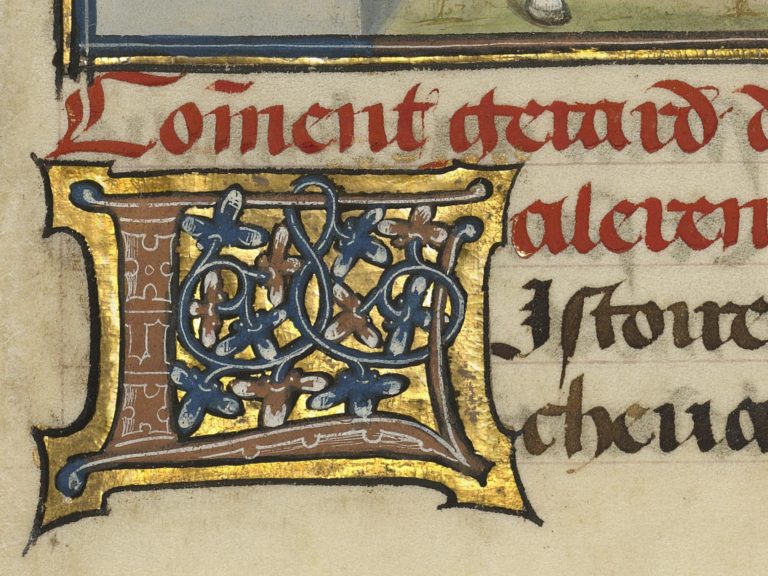 Com̄ent gerard d
aleren
LIſtoire
cheua